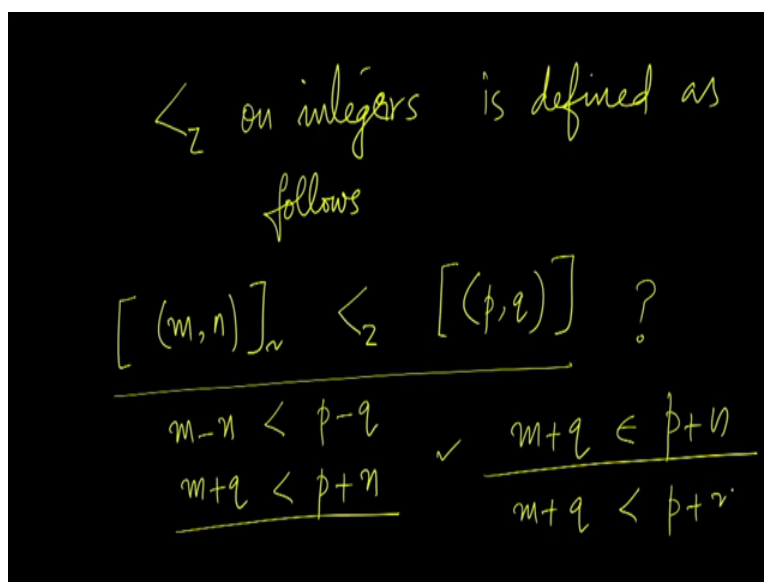 <_Z on integers is defined as
follows
[(m,n)]_~ <_Z [(p,q)] ?
m-n < p-q
m+q < p+n ✓ m+q ∈ p+n
m+q < p+n